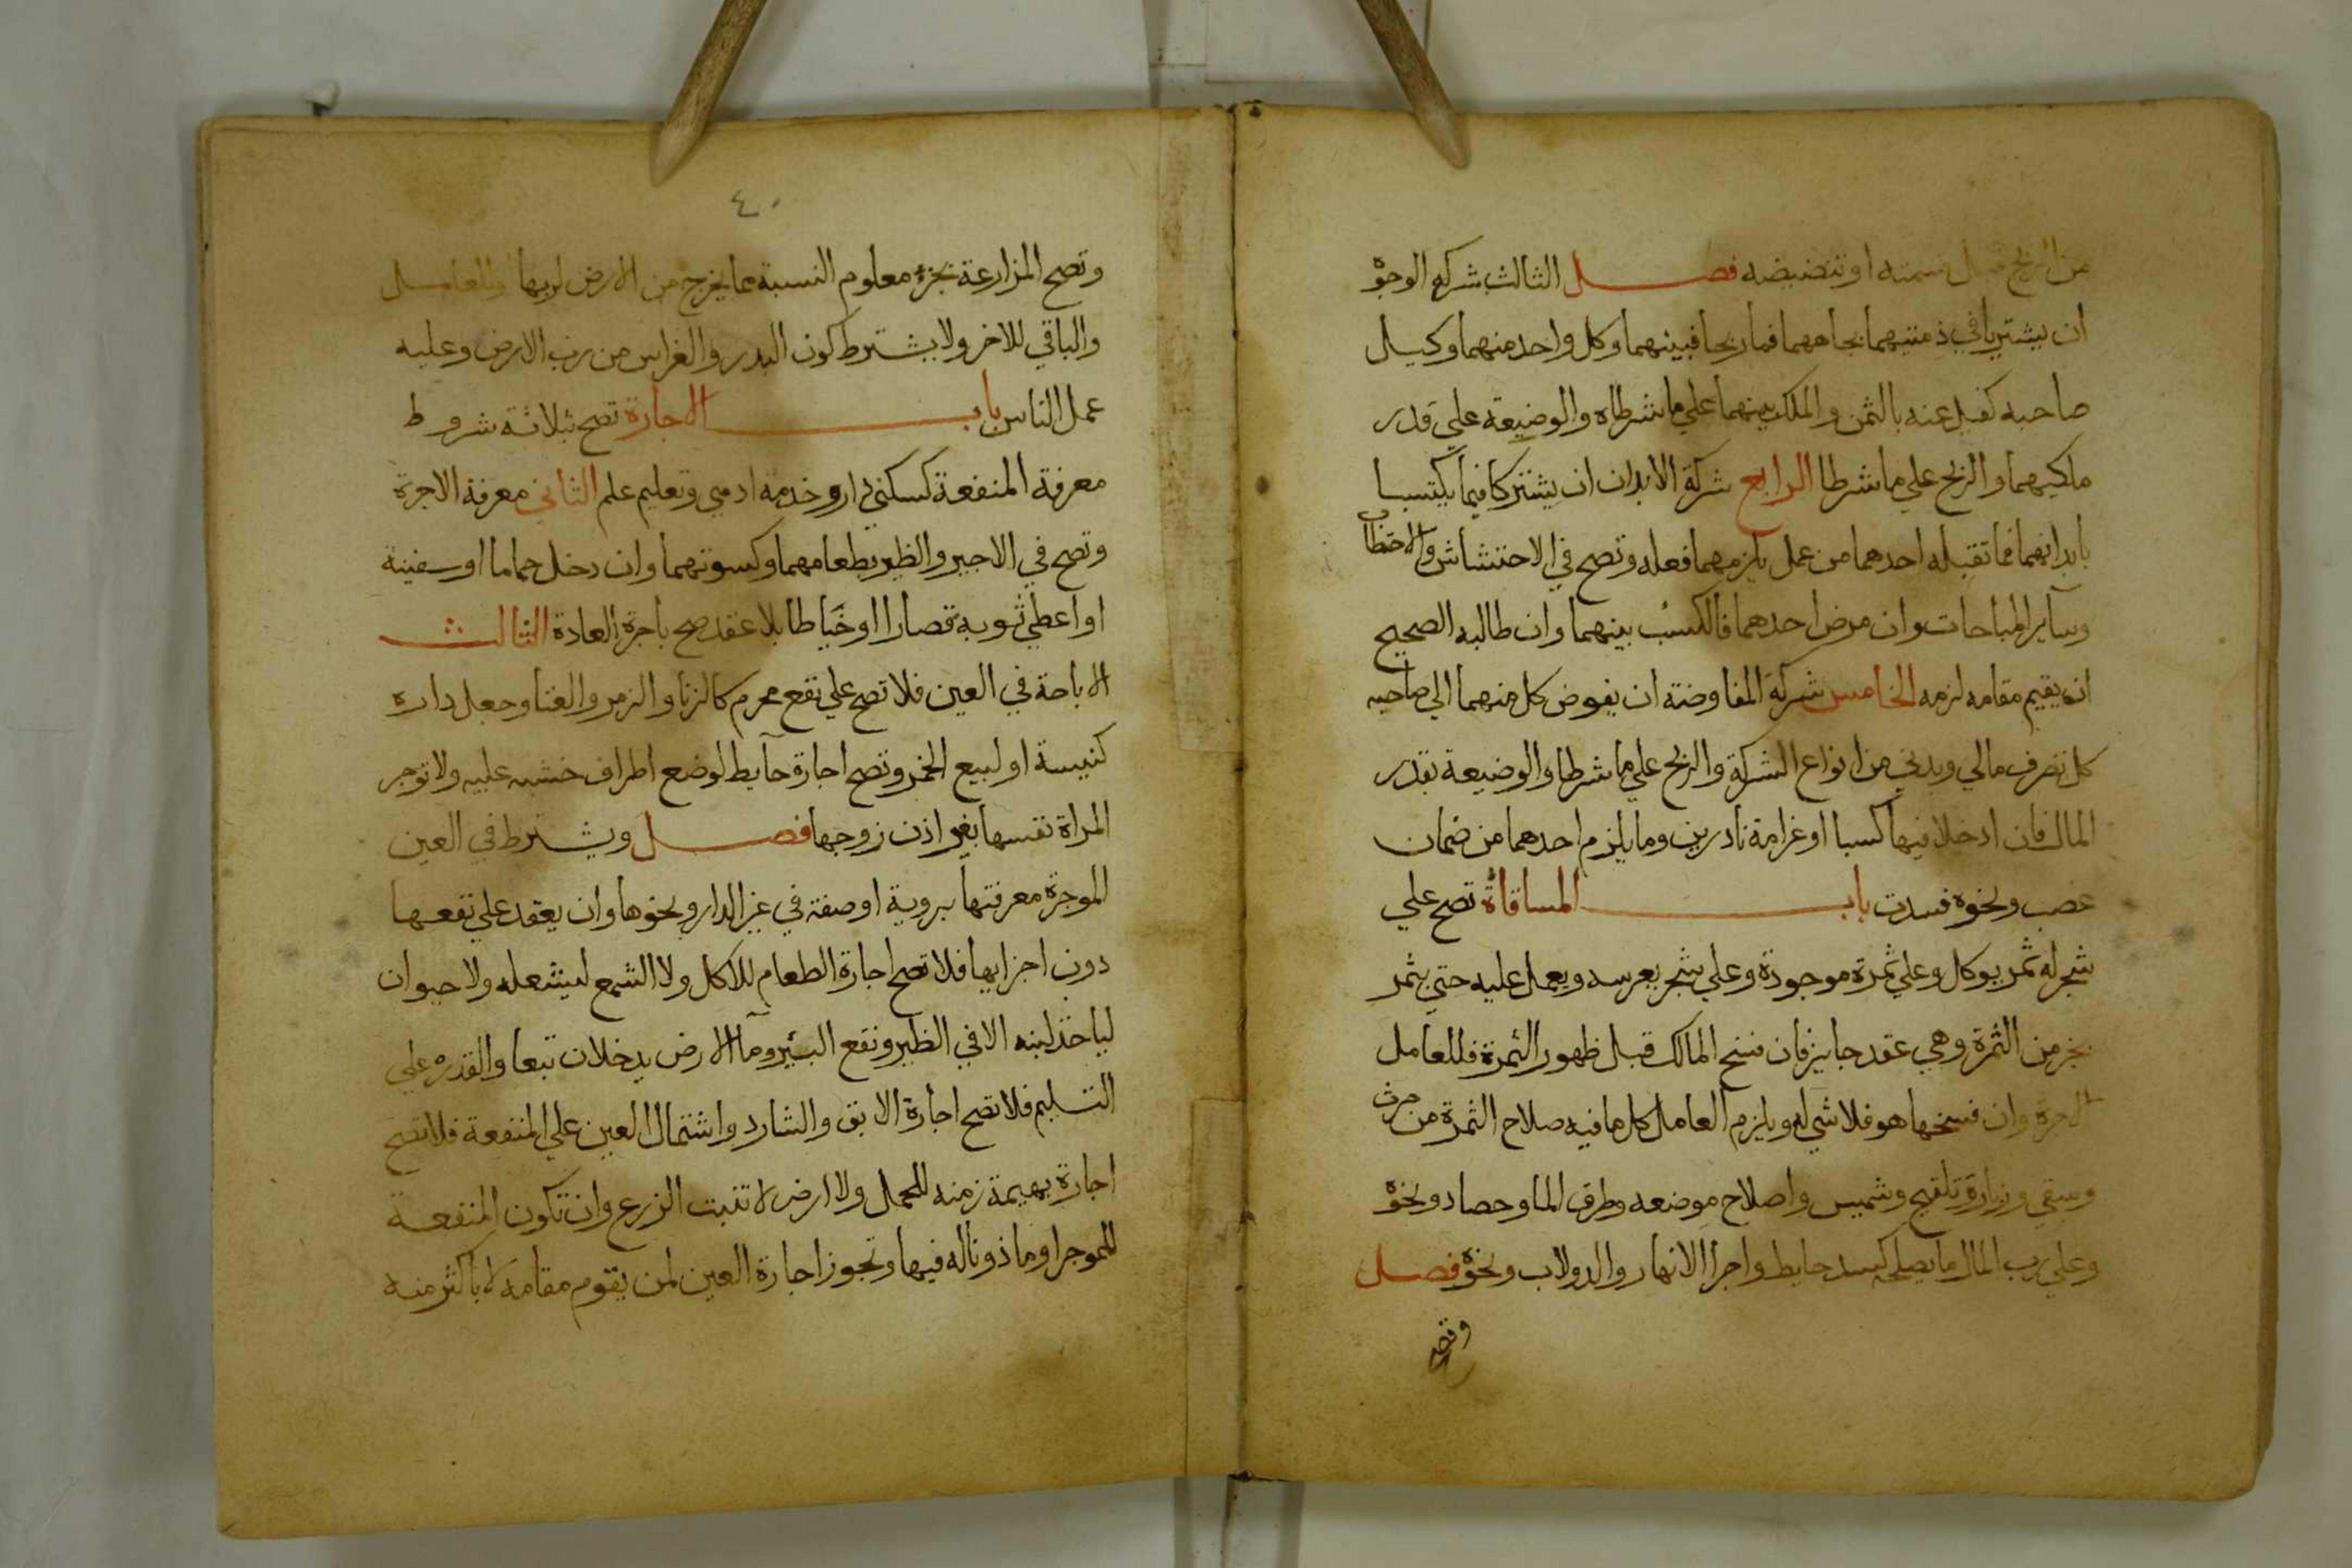 من الربح قبل قسمته او تنضيضه فصل الثالث شركة الوجوه
ان يشتريا في ذمتيهما بجاههما فما ربحا فبينهما وكل واحد منهما وكيل
صاحبه كفيل عنه بالثمن والملك بينهما علي ما شرطاه والوضيعة علي قدر
ملكيهما والربح علي ما شرطا الرابع شركة الابدان ان يشتركا فيما يكتسبا
بابدانهما فما تقبله احدهما من عمل يلزمهما فعله وتصح في الاحتشاش والاحتطاب
وسآير المباحات وان مرض احدهما فالكسب بينهما وان طالبه الصحيح
ان يقيم مقامه لزمه الخامس شركة المفاوضة ان يفوض كل منهما الي صاحبه
كل تصرف مالي وبدني من انواع الشركة والربح علي ما شرطا والوضيعة بقدر
المال فان ادخلا فيها كسبا او غرامة نادرين وما يلزم احدهما من ضمان
غصب ونحوه فسدت باب المساقاة تصح علي
شجر له ثمر يوكل وعلي ثمرة موجودة وعلي شجر يغرسه ويعمل عليه حتي يثمر
بجز من الثمرة وهي عقد جايز فان فسخ المالك قبل ظهور الثمرة فللعامل
الاجرة وان فسخها هو فلا شي له ويلزم العامل كل ما فيه صلاح الثمرة من حرث
وسقي وزبار وتلقيح وتشميس واصلاح موضعه وطرق الما وحصاد ونحوه
وعلي رب المال ما يصلحه كسد حايط واجرا الانهار والدولاب ونحوه فصل
وتصح
٤٠
وتصح المزارعة بجزء معلوم النسبة مما يخرج من الارض لربها او للعامل
والباقي للاخر ولا يشترط كون البدر والغراس من رب الارض وعليه
عمل الناس باب الاجارة تصح بثلاثة شروط
معرفة المنفعة كسكني دار وخدمة ادمي وتعليم علم الثاني معرفة الاجرة
وتصح في الاجير والظير بطعامهما وكسوتهما وان دخل حماما او سفينة
او اعطي ثوبه قصارا او خياطا بلا عقد صح باجرة العادة الثالث
الاباحة في العين فلا تصح علي نفع محرم كالزنا والزمر والغنا وجعل داره
كنيسة او لبيع الخمر وتصح اجارة حآيط لوضع اطراف خشبه عليه ولا توجر
المراة نفسها بغير اذن زوجها فصل ويشترط في العين
الموجرة معرفتها بروية او صفة في غير الدار ونحوها وان يعقد علي نفعها
دون اجزايها فلا تصح اجارة الطعام للاكل ولا الشمع ليشعله ولا حيوان
لياخذ لبنه الا في الظير ونفع البئير ومآ الارض يدخلان تبعا والقدرة علي
التسليم فلا تصح اجارة الابق والشارد واشتمال العين علي المنفعة فلا تصح
اجارة بهيمة زمنه للحمل ولا ارض لا تنبت الزرع وان تكون المنفعة
للموجر او ماذونا له فيها وتجوز اجارة العين لمن يقوم مقامه لا باكثر منه